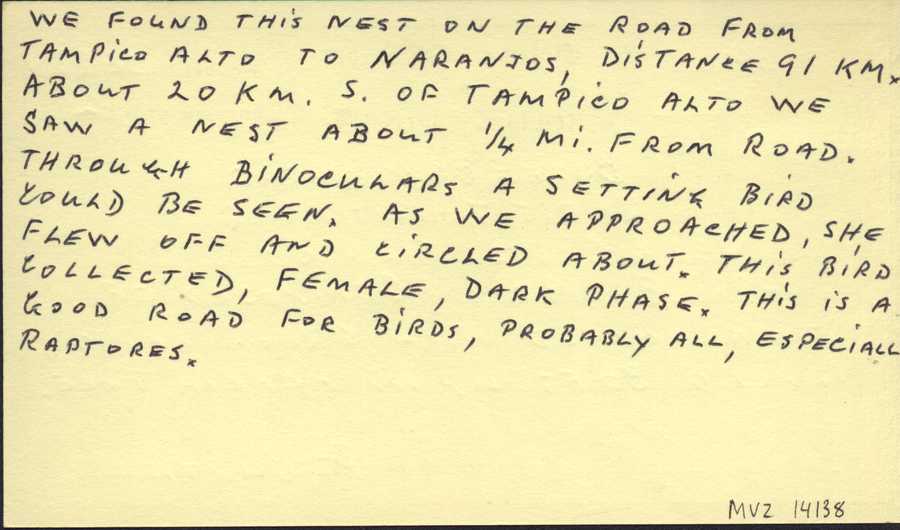 WE FOUND THIS NEST ON THE ROAD FROM
TAMPICO ALTO TO NARANJOS, DISTANCE 91 KM.
ABOUT 20 KM. S. OF TAMPICO ALTO WE
SAW A NEST ABOUT 1/4 MI. FROM ROAD.
THROUGH BINOCULARS A SETTING BIRD
COULD BE SEEN. AS WE APPROACHED, SHE
FLEW OFF AND CIRCLED ABOUT. THIS BIRD
COLLECTED, FEMALE, DARK PHASE. THIS IS A
GOOD ROAD FOR BIRDS, PROBABLY ALL, ESPECIALL
RAPTORES.
MVZ 14138